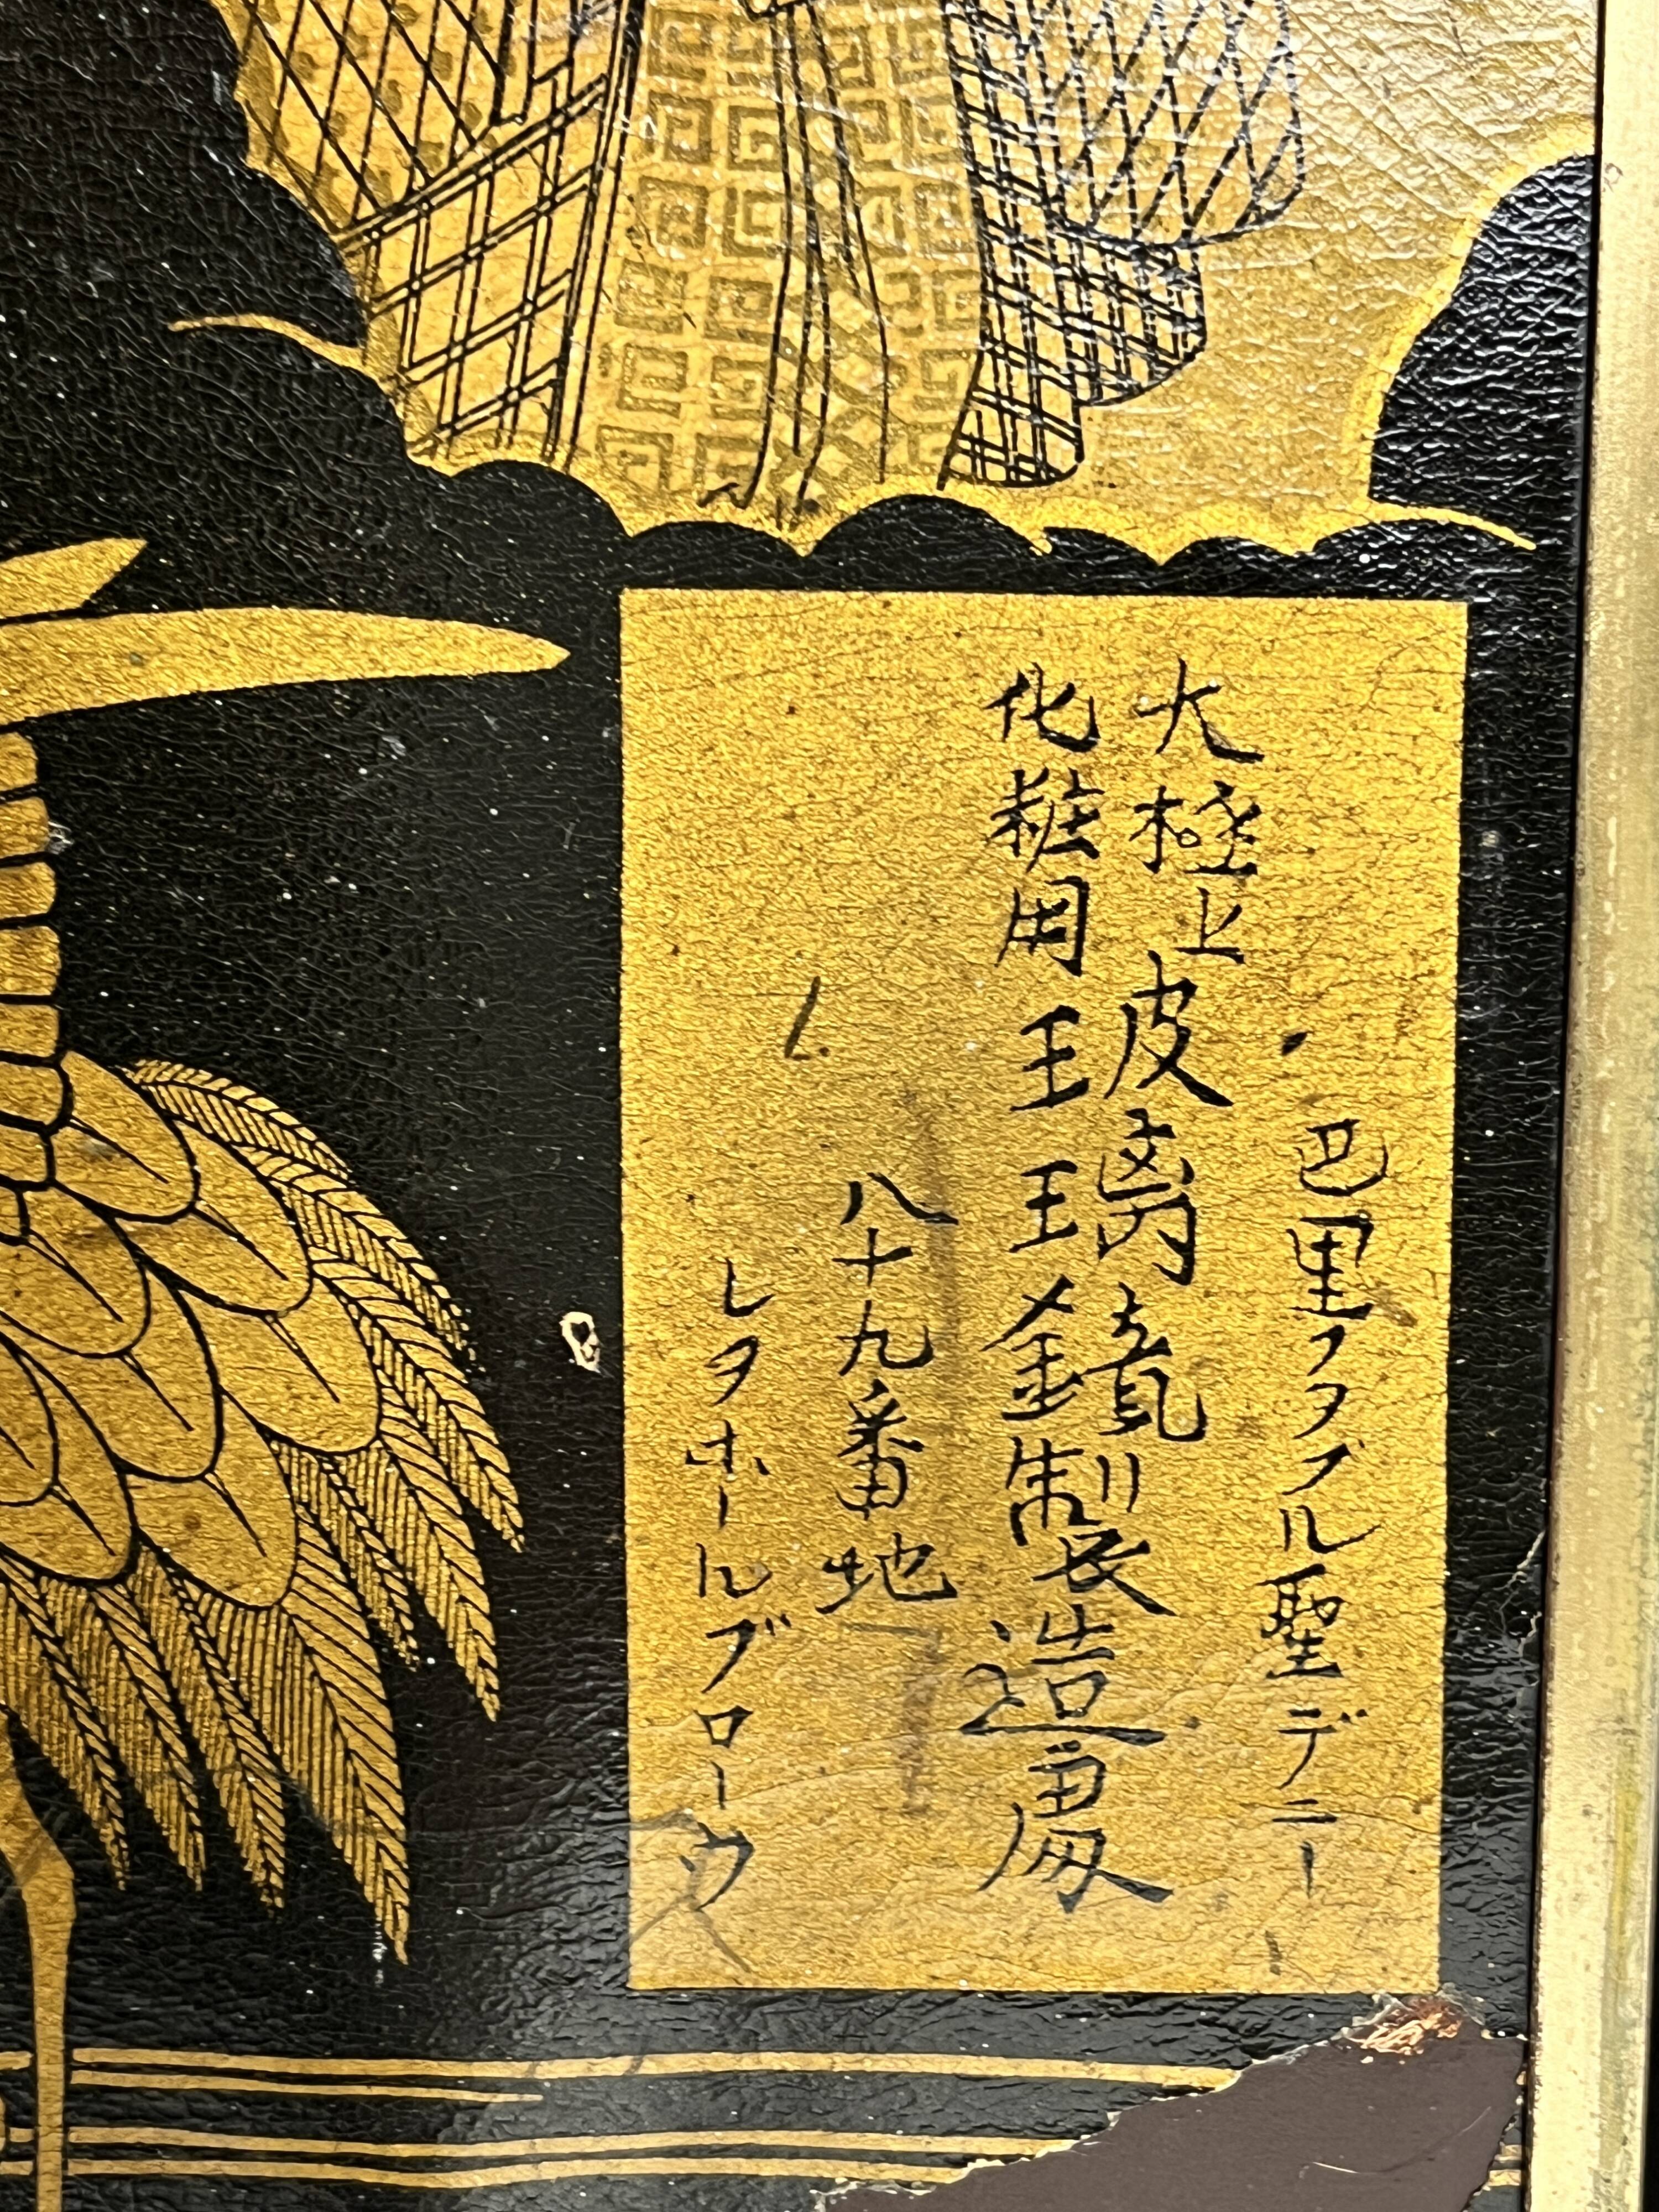 巴里フヲブル聖デニー
大極上
化粧用
玻璃鏡製造處
八十九番地
レヲホールブローウ